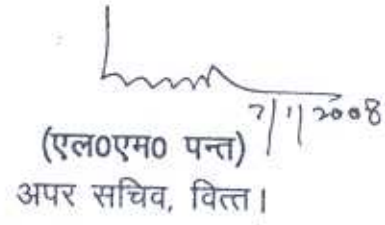 7/1/2008
(एल0एम0 पन्त)
अपर सचिव, वित्त।